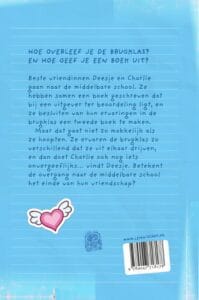 HOE OVERLEEF JE DE BRUGKLAS?
EN HOE GEEF JE EEN BOEK UIT?
Beste vriendinnen Deesje en Charlie
gaan naar de middelbare school. Ze
hebben samen een boek geschreven dat
bij een uitgever ter beoordeling ligt, en
ze besluiten van hun ervaringen in de
brugklas een tweede boek te maken.
Maar dat gaat niet zo makkelijk als
ze hoopten. Ze ervaren de brugklas zo
verschillend dat ze uit elkaar drijven,
en dan doet Charlie ook nog iets
onvergeeflijks... vindt Deesje. Betekent
de overgang naar de middelbare school
het einde van hun vriendschap?